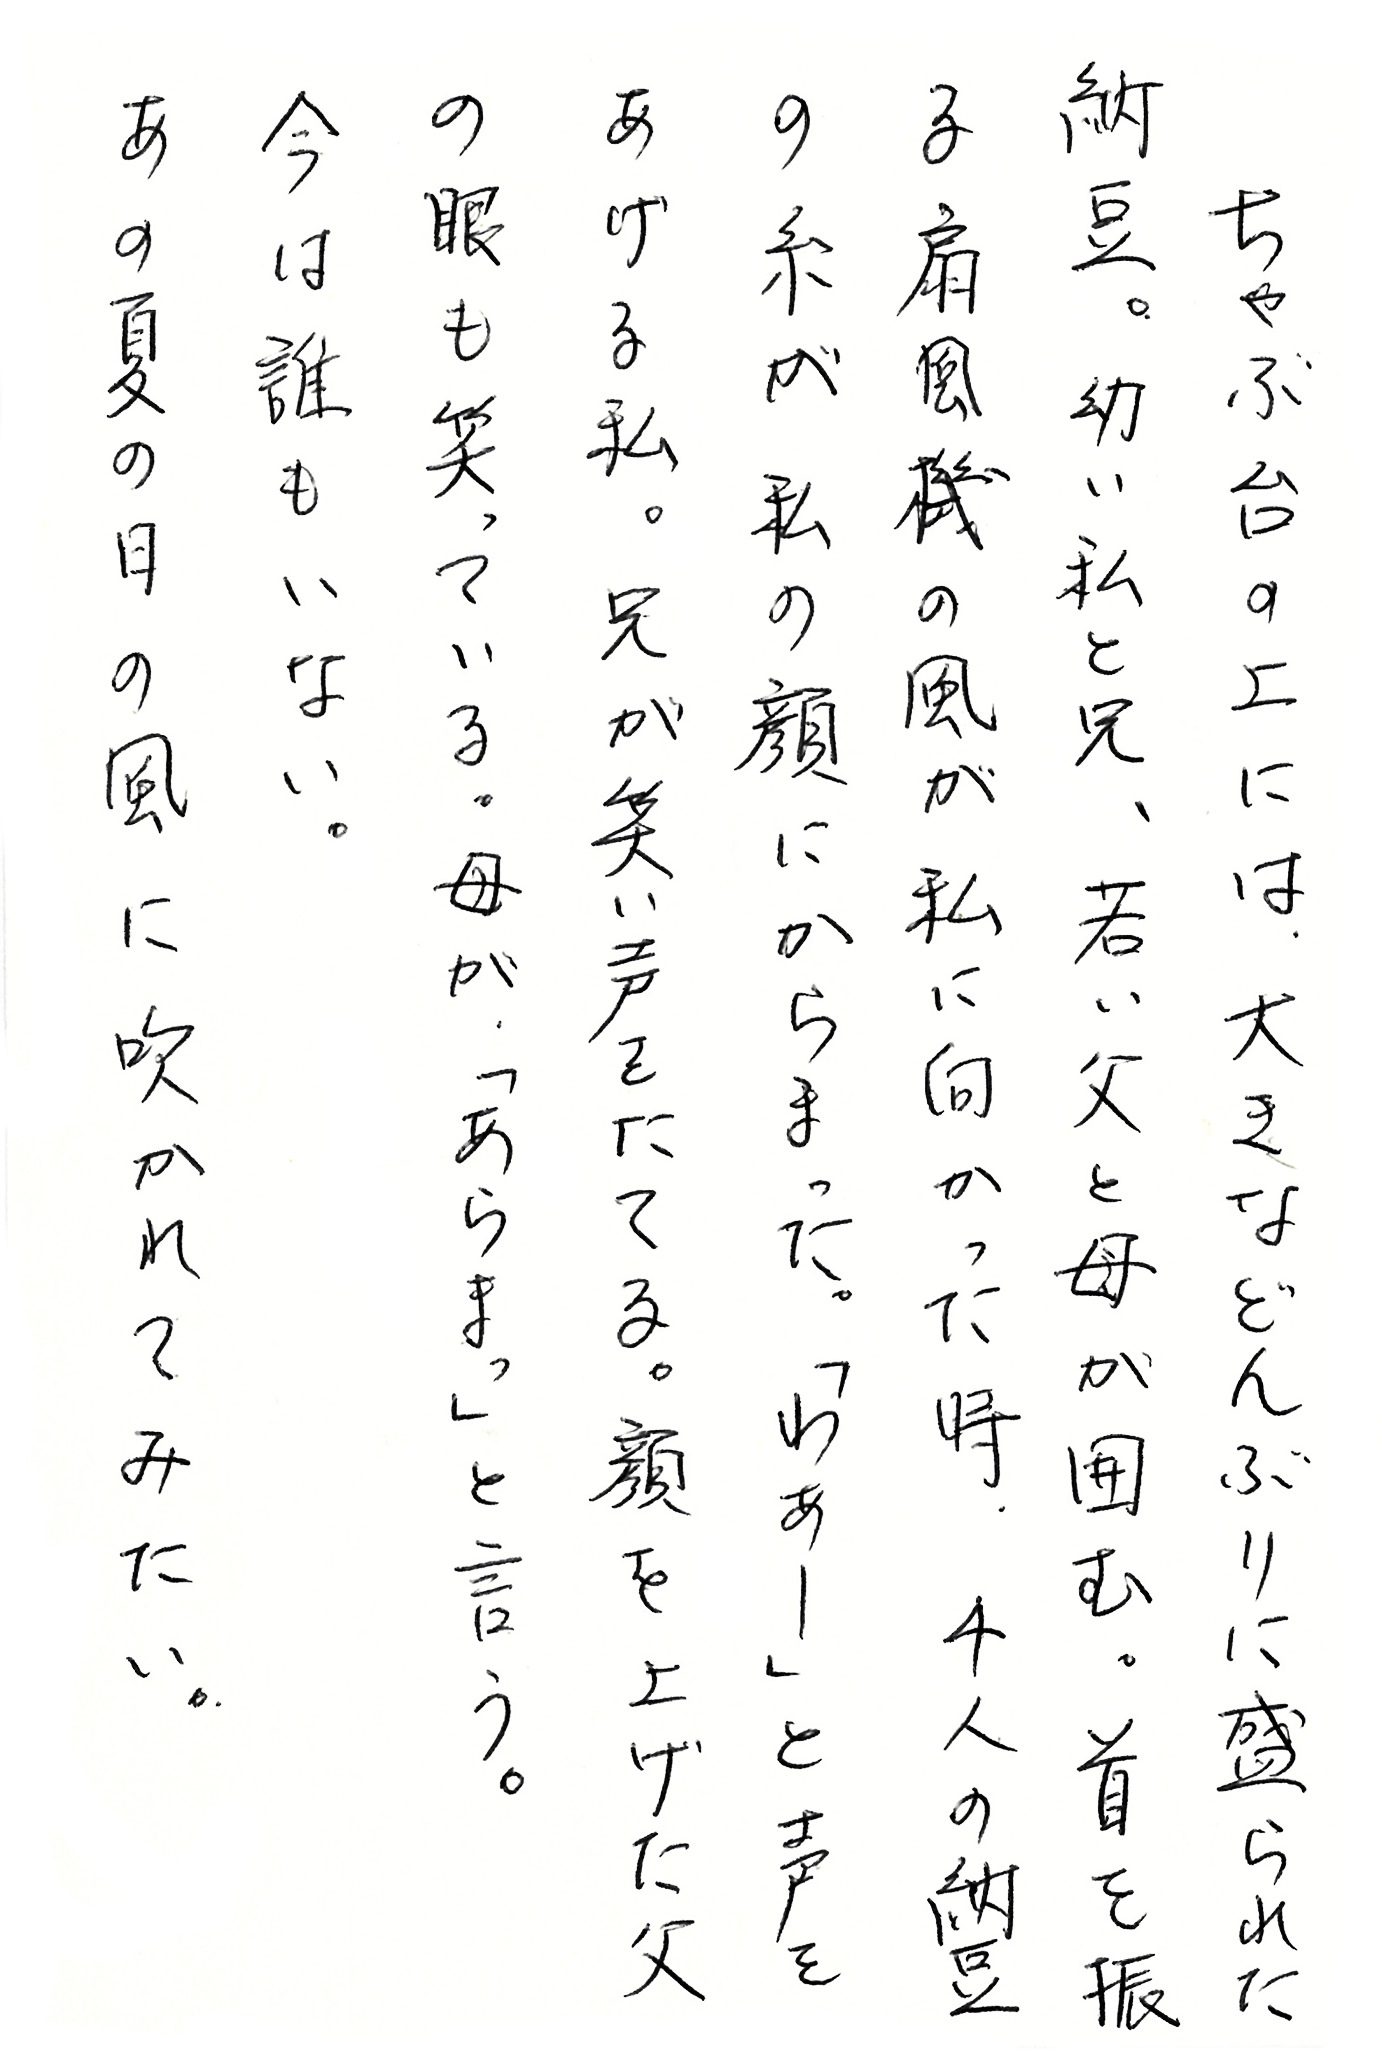 ちゃぶ台の上には、大きなどんぶりに盛られた
納豆。幼い私と兄、若い父と母が囲む。首を振
る扇風機の風が私に向かった時、4人の納豆
の糸が私の顔にからまった。「わぁー」と声を
あげる私。兄が笑い声をたてる。顔を上げた父
の眼も笑っている。母が、「あらまっ」と言う。
今は誰もいない。
あの夏の日の風に吹かれてみたい。